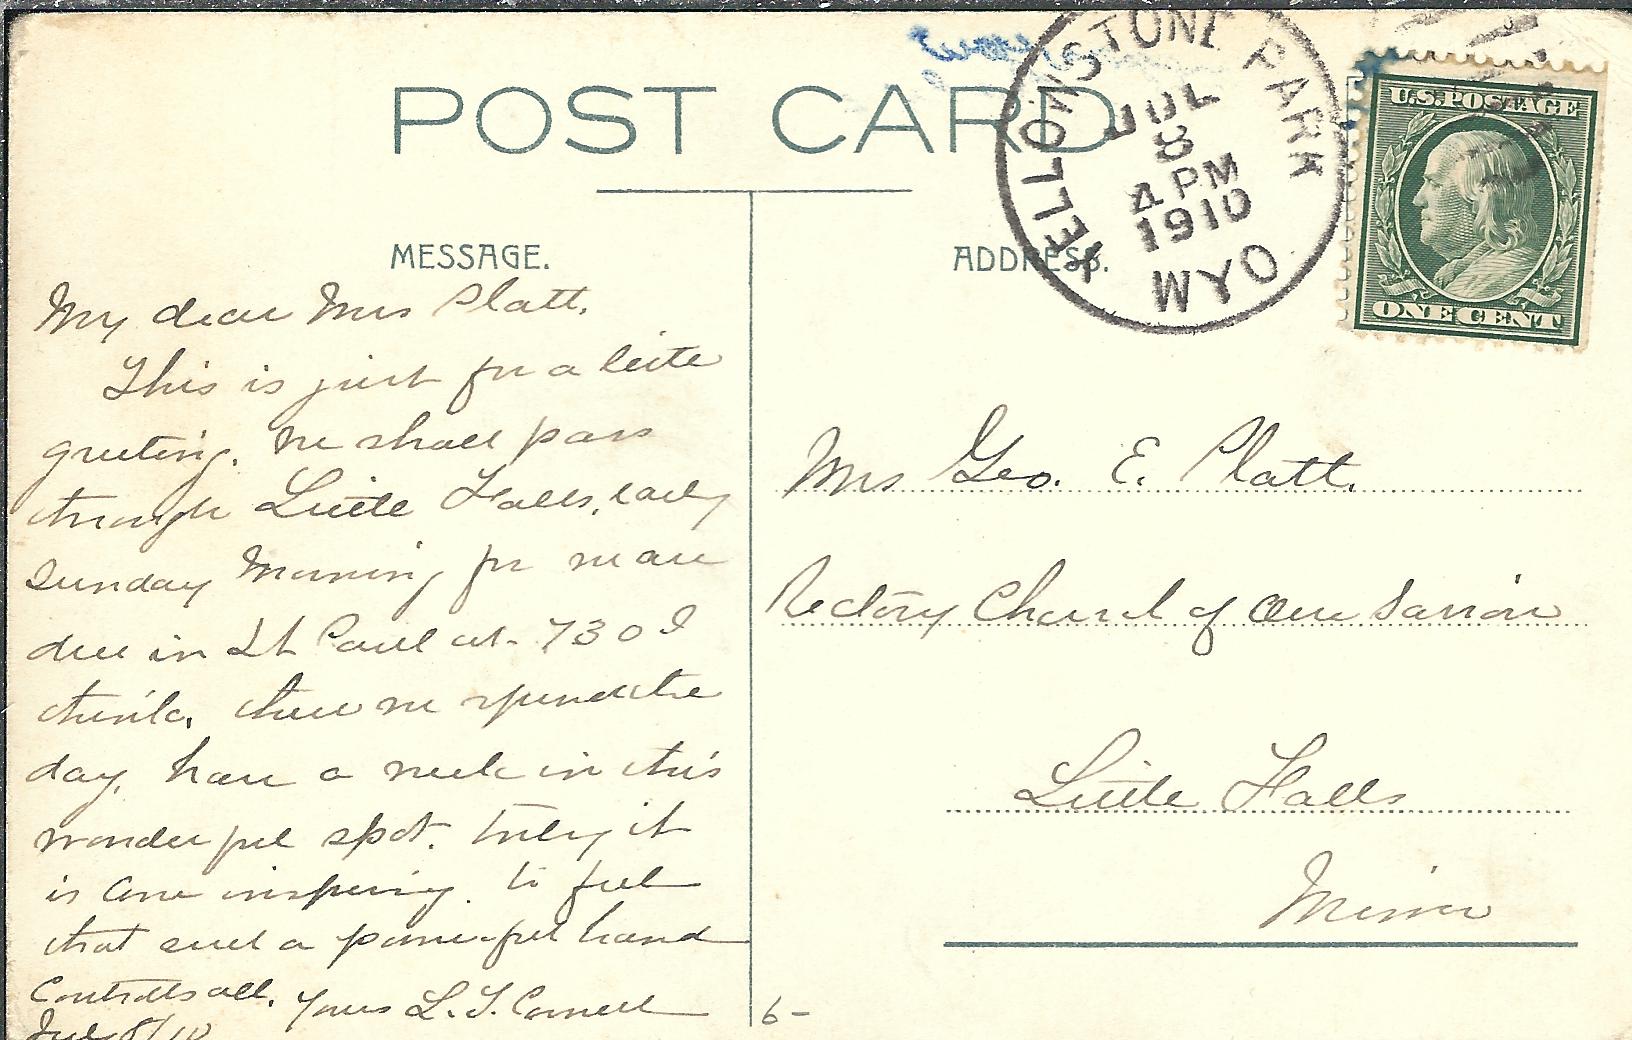 POST CARD
MESSAGE.
My dear Mrs Platt.
This is just for a little
greeting. We shall pass
through Little Falls, early
Sunday Morning for we are
due in St Paul at 730 I
think. there we spend the
day. have a week in this
wonderful spot. Truly it
is awe inspiring. to feel
that such a powerful hand
Controlls all. Yours L. S. Cornell
July 8/10
6-
ADDRESS.
YELLOWSTONE PARK
JUL
8
4 PM
1910
WYO
U.S. POSTAGE
ONE CENT
Mrs Geo. E. Platt.
Rectory Church of Our Savior
Little Falls
Minn